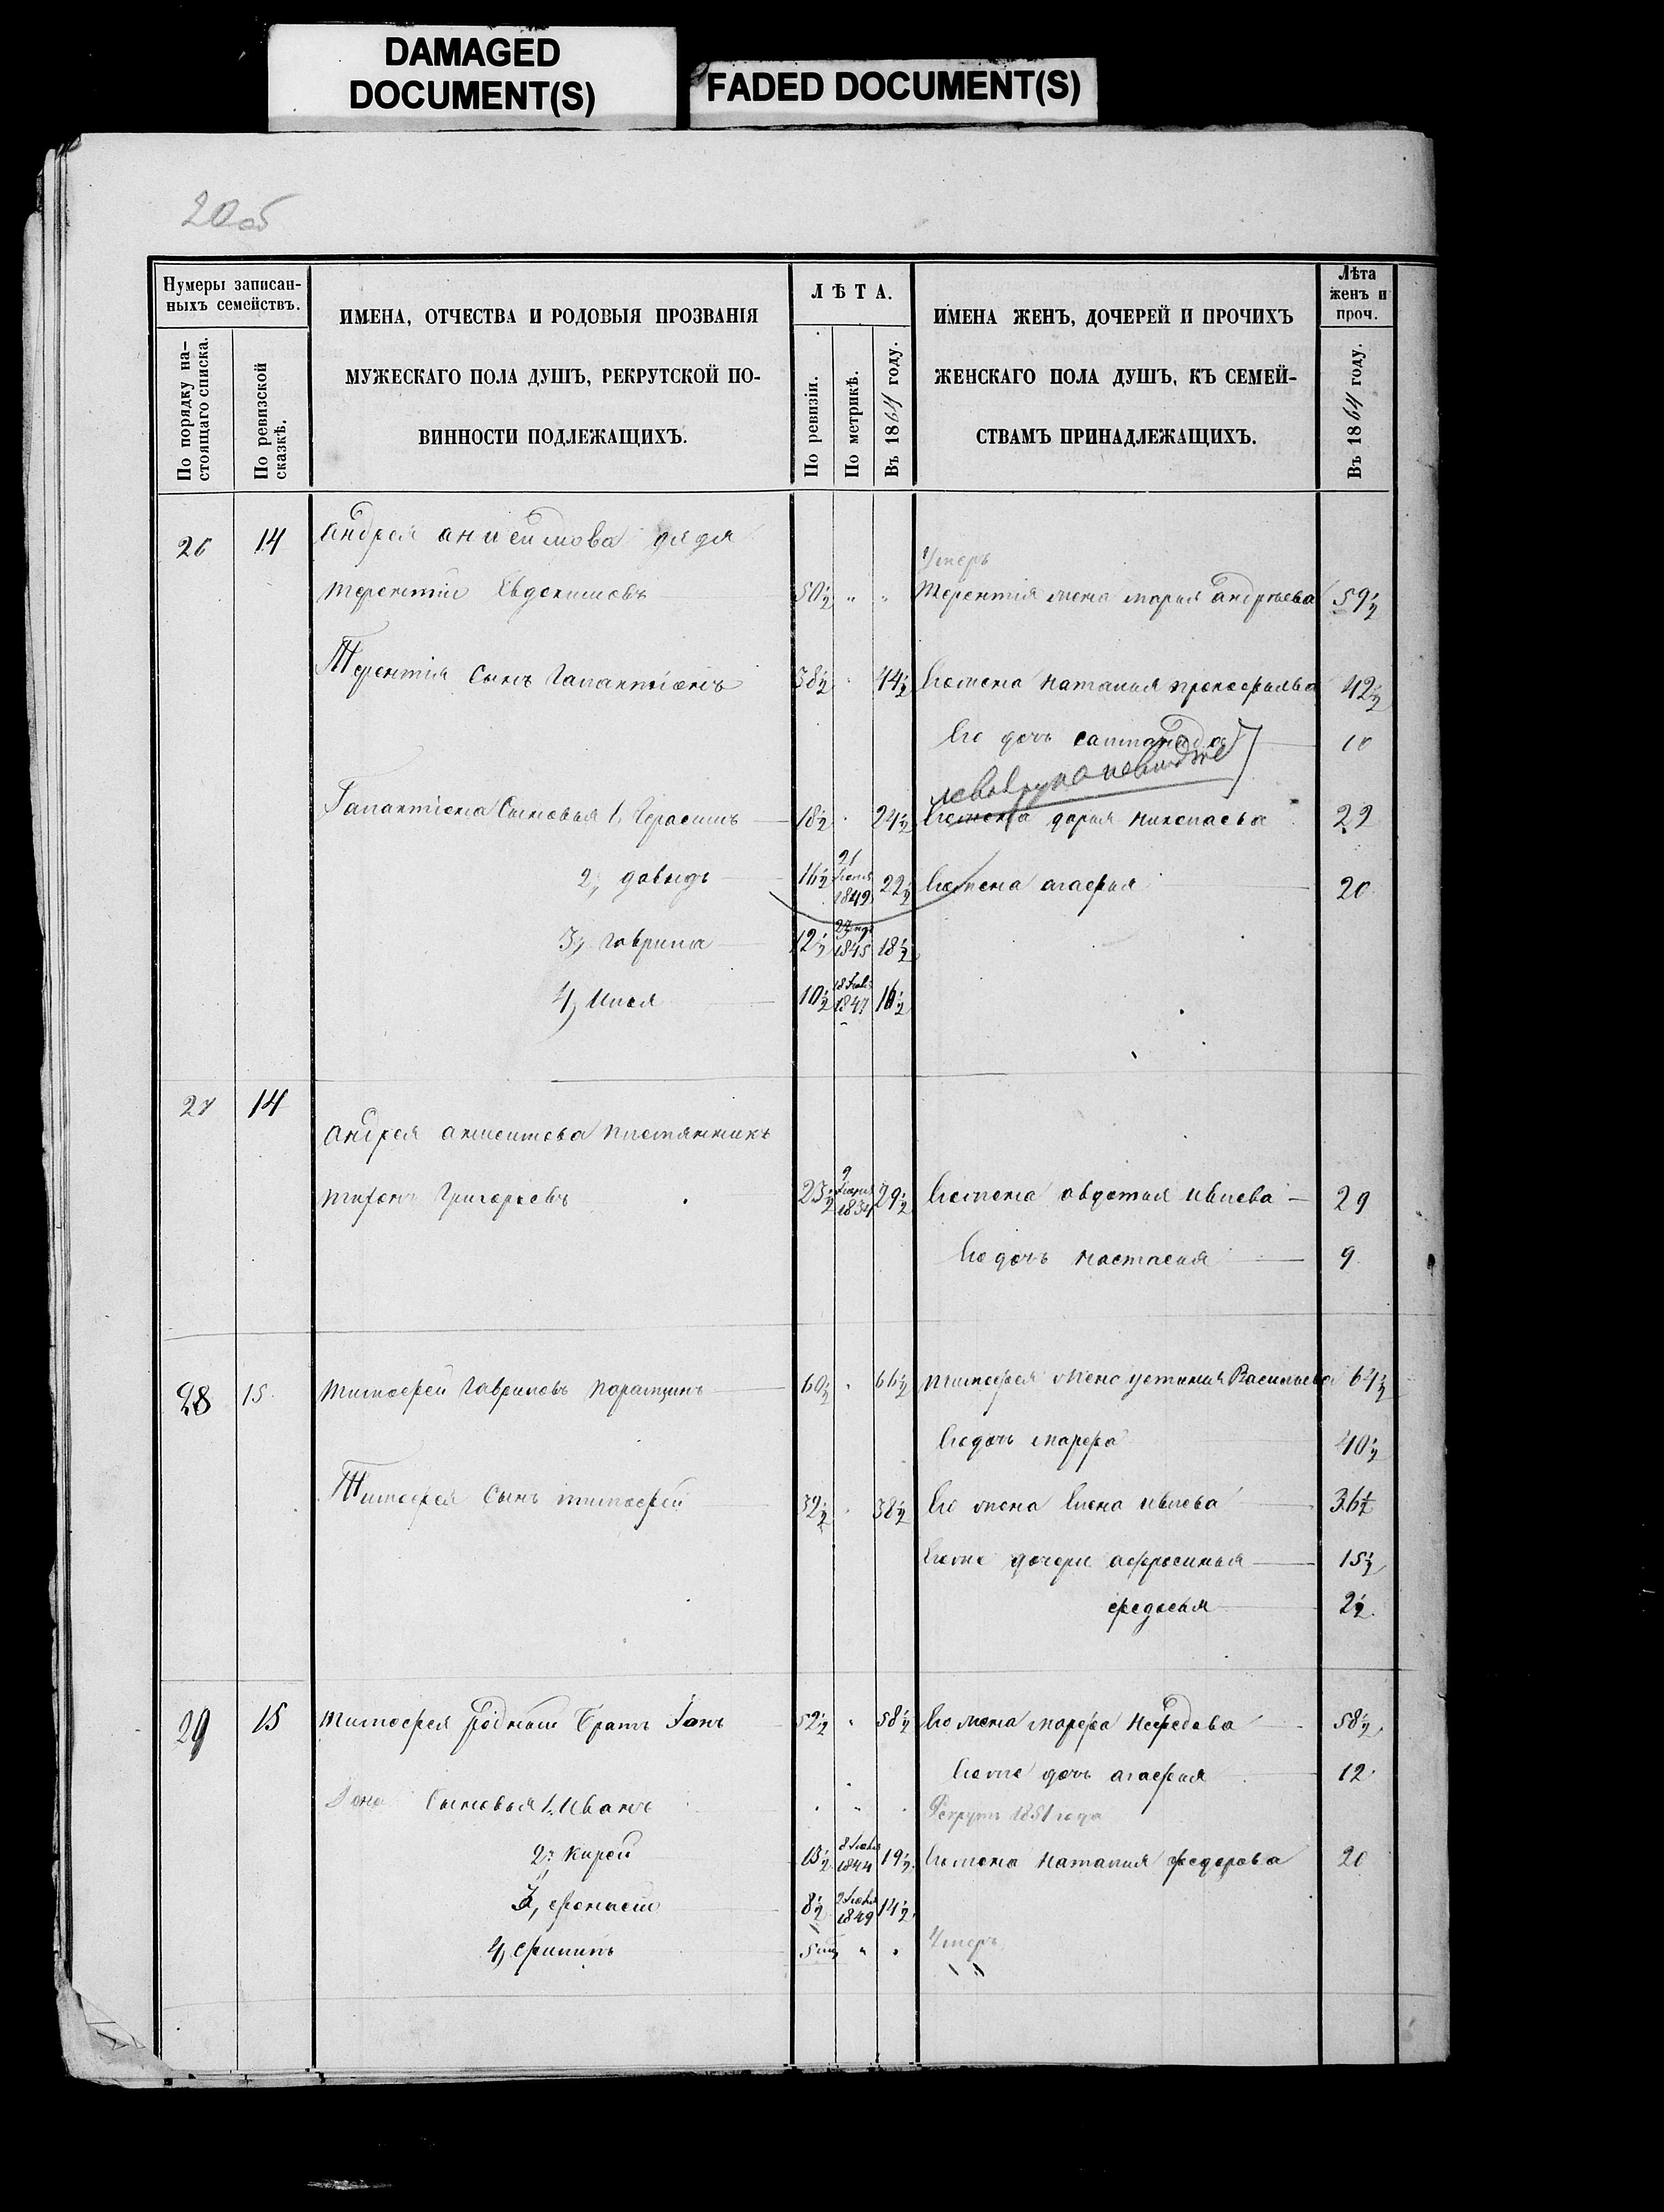 DAMAGED
DOCUMENT(S)
FADED DOCUMENT(S)
20 об
Нумеры записан-
ныхъ семействъ.
По порядку на-
стоящаго списка.
По ревизской
сказкѣ.
ИМЕНА, ОТЧЕСТВА И РОДОВЫЯ ПРОЗВАНІЯ
МУЖЕСКАГО ПОЛА ДУШЪ, РЕКРУТСКОЙ ПО-
ВИННОСТИ ПОДЛЕЖАЩИХЪ.
ЛѢТА.
По ревизіи.
По метрикѣ.
Въ 1864 году.
ИМЕНА ЖЕНЪ, ДОЧЕРЕЙ И ПРОЧИХЪ
ЖЕНСКАГО ПОЛА ДУШЪ, КЪ СЕМЕЙ-
СТВАМЪ ПРИНАДЛЕЖАЩИХЪ.
Лѣта
женъ и
проч.
Въ 1864 году.
26 14 Андрея анисимова дядя
Умеръ
терентій Евдокимовъ 50½ " " Терентія жена марья андрѣева 59½
Терентія Сынъ Галактіонъ 38½ 44½ Его жена наталья прокофьева 42½
Его дочь 10
Галактіона Сыновья 1, Герасимъ 18½ 24½ Его жена дарья николаева 22
2, давыдъ 16½ 21 1842 22½ Его жена агафья 20
3, гаврила 12½ 1845 18½
4, Илья 10½ 18 1847 16½
27 14
Андрея анисимова племянникъ
тихонъ Григорьевъ 23½ 9 1834 29½ Его жена авдотья ивлева 29
Его дочь настасья 9
28 15 тимофей гавриловъ 60½ 66½ тимофея жена устинья Васильева 64½
Его дочь марфа 40½
Тимофея Сынъ тимофей 32½ 38½ Его жена Елена ивлева 36½
Его же дочери афросинья 15½
федосья 2½
29 15 тимофея родной братъ Іонъ 52½ " 58½ Его жена марфа Нефедова 58½
Его же дочь агафья 12
Іона Сыновья 1, Иванъ " Рекрутъ 1851 года
2, кирей 13½ 8 1844 19½ Его жена наталия федорова 20
3, 8½ 2 1849 14½
4, филипъ 5 " " Умеръ